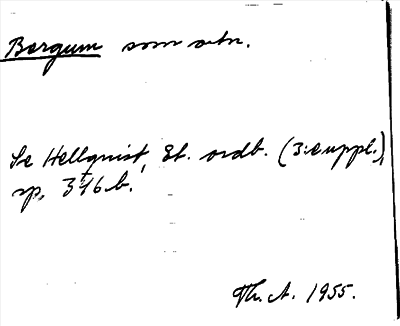 Bergum som ortn.
Se Hellquist, Et. ordb. (3:e uppl.),
sp. 346 b.
Th. A. 1955.